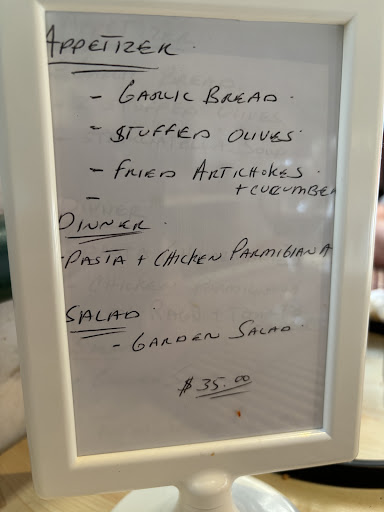 APPETIZER.
- GARLIC BREAD.
- STUFFED OLIVES.
- FRIED ARTICHOKES.
+ CUCUMBER
-
DINNER.
- PASTA + CHICKEN PARMIGIANA
SALAD
- GARDEN SALAD.
$ 35.00